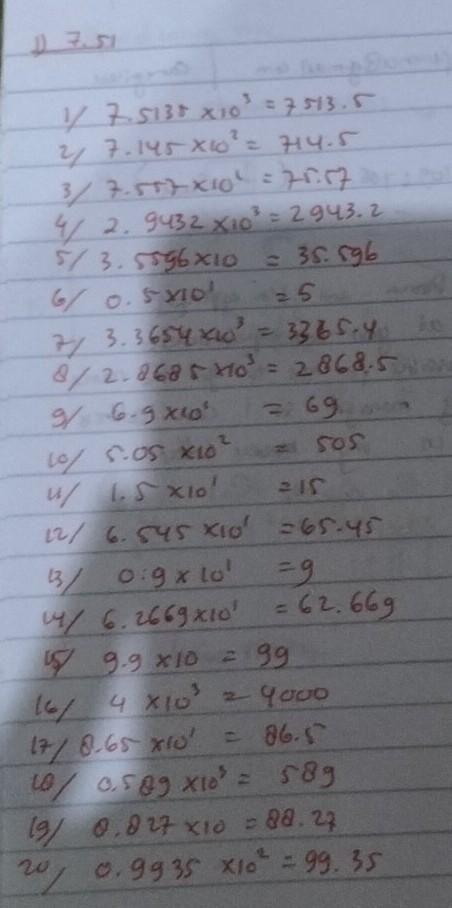 1) 7.51
1/ 7.5135 ×10³ = 7513.5
2/ 7.145 ×10² = 714.5
3/ 7.557 ×10¹ = 75.57
4/ 2.9432 ×10³ = 2943.2
5/ 3.5596 ×10 = 35.596
6/ 0.5 ×10¹ = 5
7/ 3.3654 ×10³ = 3365.4
8/ 2.8685 ×10³ = 2868.5
9/ 6.9 ×10¹ = 69
10/ 5.05 ×10² = 505
11/ 1.5 ×10¹ = 15
12/ 6.545 ×10¹ = 65.45
13/ 0.9 ×10¹ = 9
14/ 6.2669 ×10¹ = 62.669
15/ 9.9 ×10 = 99
16/ 4 ×10³ = 4000
17/ 8.65 ×10¹ = 86.5
18/ 0.589 ×10³ = 589
19/ 8.827 ×10 = 88.27
20/ 0.9935 ×10² = 99.35